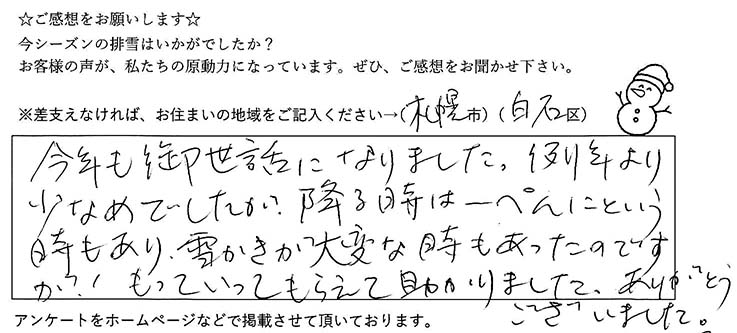 ☆ご感想をお願いします☆
今シーズンの排雪はいかがでしたか？
お客様の声が、私たちの原動力になっています。ぜひ、ご感想をお聞かせ下さい。
※差支えなければ、お住まいの地域をご記入ください→（札幌市）（白石区）
今年も御世話になりました。例年より
少なめでしたが、降る時は一ぺんにという
時もあり、雪かきが大変な時もあったのです
が、もっていってもらえて助かりました、ありがとう
ございました。
アンケートをホームページなどで掲載させて頂いております。